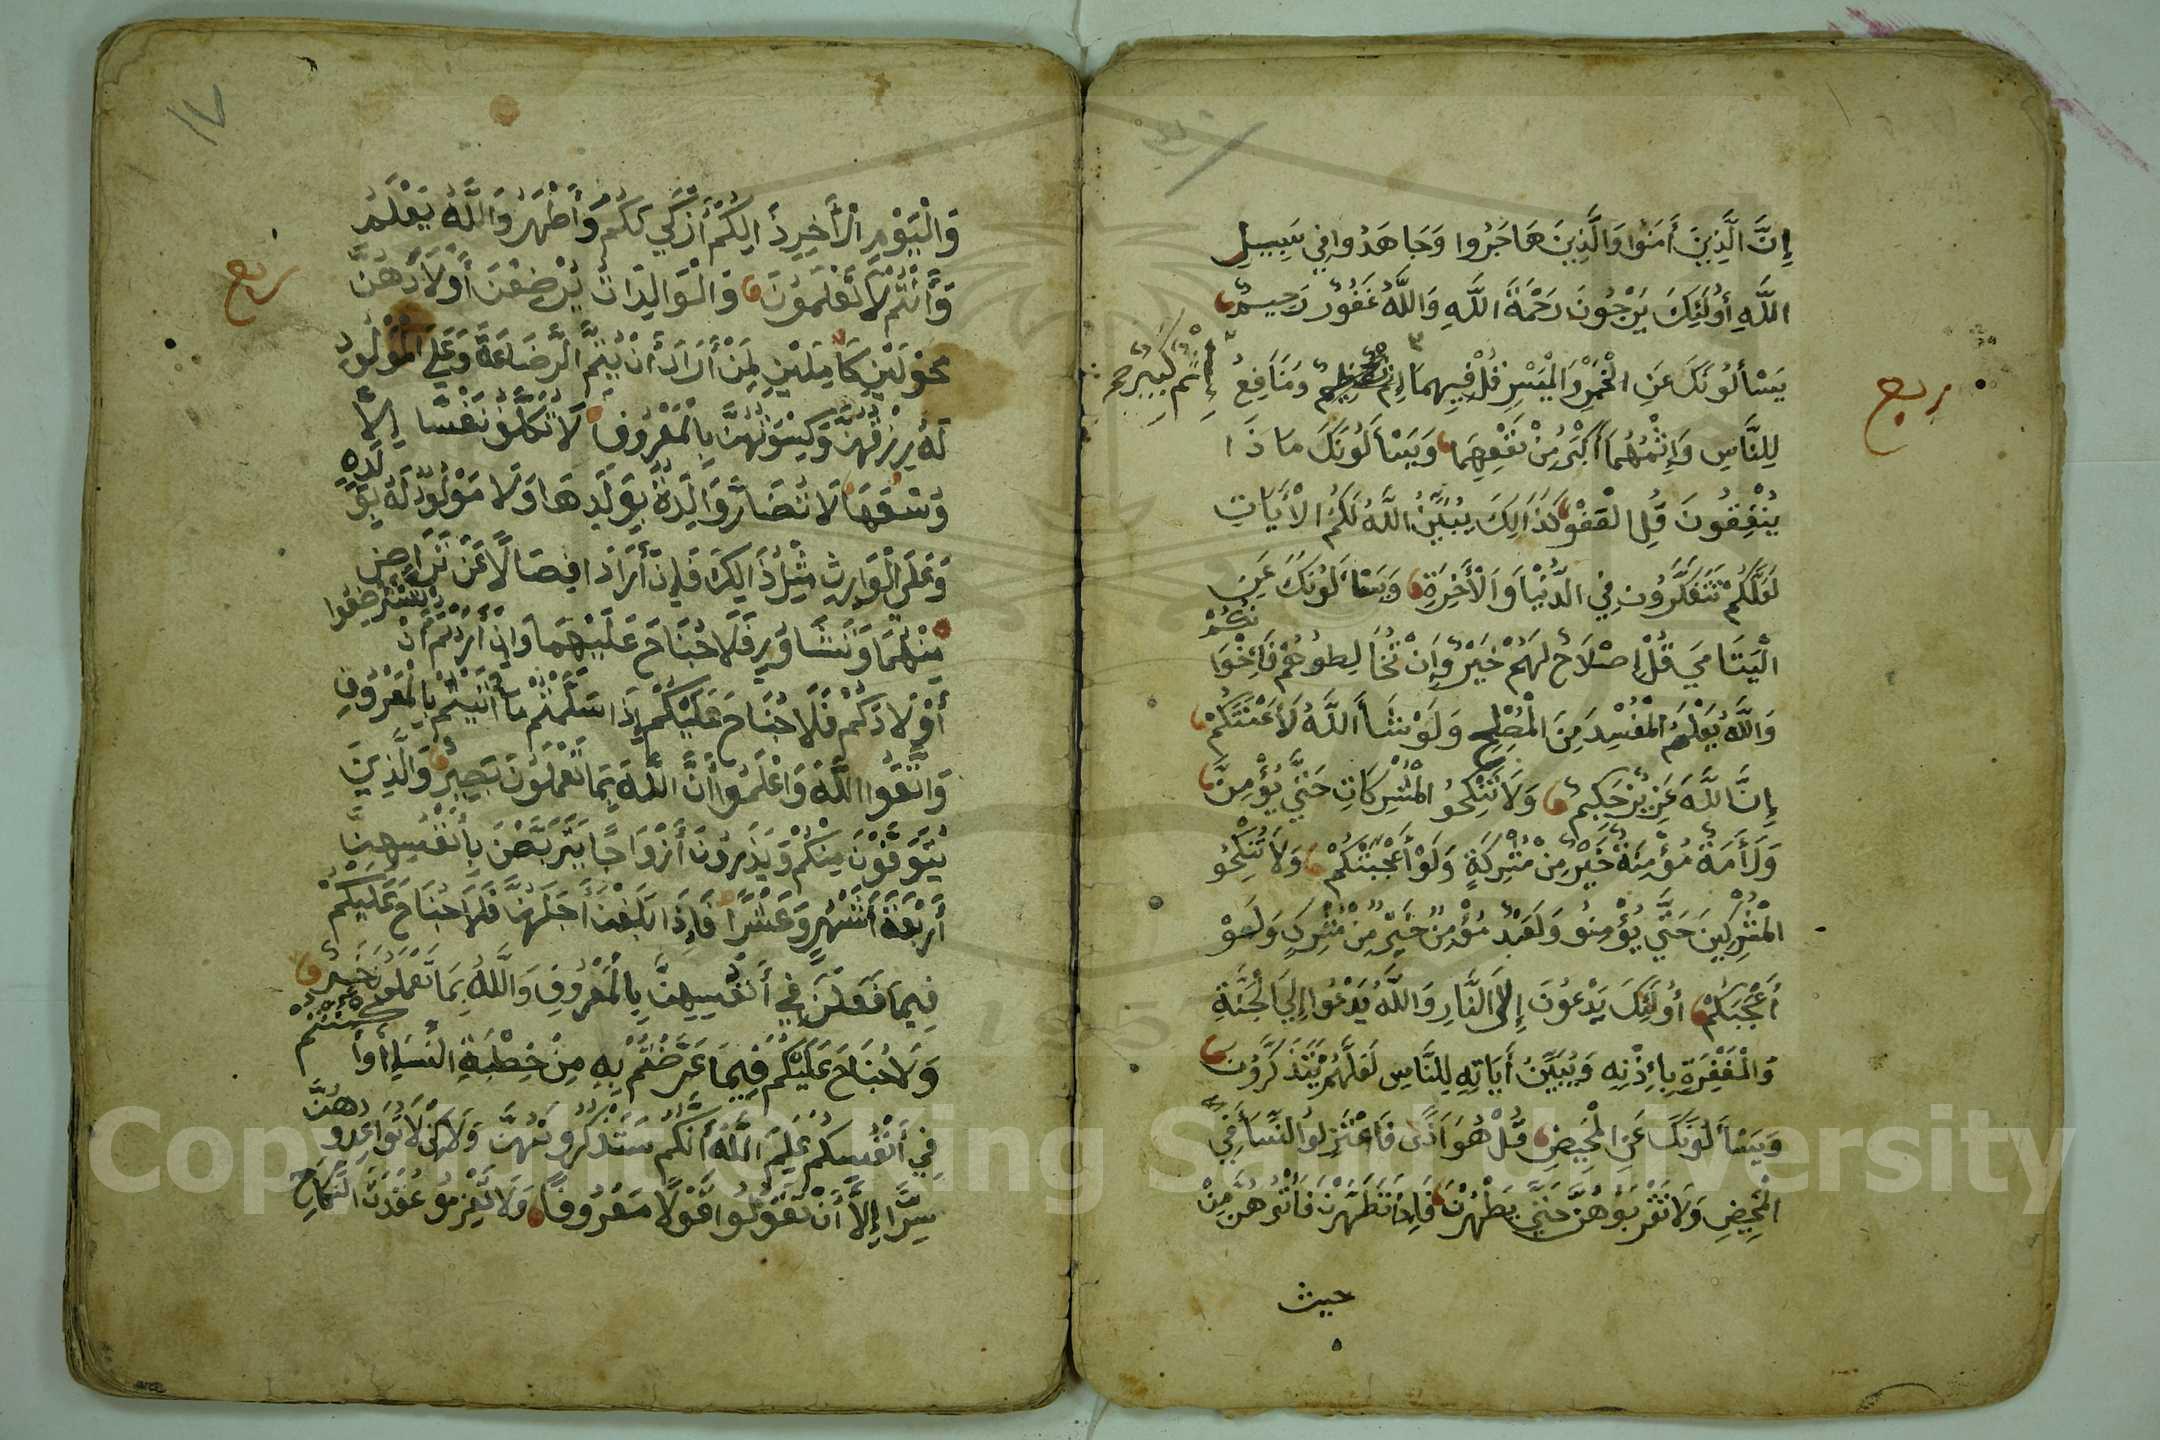 إِنَّ الَّذِينَ أَمَنُوا وَالَّذِينَ هَاجَرُوا وَجَاهَدُوا فِي سَبِيلِ
اللَّهِ أُولَئِكَ يَرْجُونَ رَحْمَةَ اللَّهِ وَاللَّهُ غَفُورٌ رَحِيمٌ
يَسْأَلُونَكَ عَنِ الْخَمْرِ وَالْمَيْسِرِ قُلْ فِيهِمَا إِثْمٌ وَمَنَافِعُ
إِثْمٌ كَبِيرٌ صح
ربع
لِلنَّاسِ وَإِثْمُهُمَا أَكْبَرُ مِنْ نَفْعِهِمَا وَيَسْأَلُونَكَ مَاذَا
يُنْفِقُونَ قُلِ الْعَفْوَ كَذَالِكَ يُبَيِّنُ اللَّهُ لَكُمُ الْأَيَاتِ
لَعَلَّكُمْ تَتَفَكَّرُونَ فِي الدُّنْيَا وَالْأَخِرَةِ وَيَسْأَلُونَكَ عَنِ
الْيَتَامَى قُلْ إِصْلَاحٌ لَهُمْ خَيْرٌ وَإِنْ تُخَالِطُوهُمْ فَإِخْوَانُكُمْ
وَاللَّهُ يَعْلَمُ الْمُفْسِدَ مِنَ الْمُصْلِحِ وَلَوْ شَأَ اللَّهُ لَأَعْنَتَكُمْ
إِنَّ اللَّهَ عَزِيزٌ حَكِيمٌ وَلَا تَنْكِحُو الْمُشْرِكَاتِ حَتَّى يُؤْمِنَّ
وَلَأَمَةٌ مُؤْمِنَةٌ خَيْرٌ مِنْ مُشْرِكَةٍ وَلَوْ أَعْجَبَتْكُمْ وَلَا تُنْكِحُو
الْمُشْرِكِينَ حَتَّى يُؤْمِنُو وَلَعَبْدٌ مُؤْمِنٌ خَيْرٌ مِنْ مُشْرِكٍ وَلَوْ
أَعْجَبَكُمْ أُولَئِكَ يَدْعُونَ إِلَى النَّارِ وَاللَّهُ يَدْعُوا إِلَى الْجَنَّةِ
وَالْمَغْفِرَةِ بِإِذْنِهِ وَيُبَيِّنُ أَيَاتِهِ لِلنَّاسِ لَعَلَّهُمْ يَتَذَكَّرُونَ
وَيَسْأَلُونَكَ عَنِ الْمَحِيضِ قُلْ هُوَ أَذًى فَاعْتَزِلُو النِّسَاءَ فِي
الْمَحِيضِ وَلَا تَقْرَبُوهُنَّ حَتَّى يَطْهُرْنَ فَإِذَا تَطَهَّرْنَ فَأْتُوهُنَّ مِنْ
حيث
١٧
وَالْيَوْمِ الْأَخِرِ ذَالِكُمْ أَزْكَى لَكُمْ وَأَطْهَرُ وَاللَّهُ يَعْلَمُ
وَأَنْتُمْ لَا تَعْلَمُونَ وَالْوَالِدَاتُ يُرْضِعْنَ أَوْلَادَهُنَّ
ربع
حَوْلَيْنِ كَامِلَيْنِ لِمَنْ أَرَادَ أَنْ يُتِمَّ الرَّضَاعَةَ وَعَلَى الْمَوْلُودِ
لَهُ رِزْقُهُنَّ وَكِسْوَتُهُنَّ بِالْمَعْرُوفِ لَا تُكَلَّفُ نَفْسٌ إِلَّا
وُسْعَهَا لَا تُضَارَّ وَالِدَةٌ بِوَلَدِهَا وَلَا مَوْلُودٌ لَهُ بِوَلَدِهِ
وَعَلَى الْوَارِثِ مِثْلُ ذَالِكَ فَإِنْ أَرَادَا فِصَالًا عَنْ تَرَاضٍ
مِنْهُمَا وَتَشَاوُرٍ فَلَا جُنَاحَ عَلَيْهِمَا وَإِنْ أَرَدْتُمْ أَنْ تَسْتَرْضِعُوا
أَوْلَادَكُمْ فَلَا جُنَاحَ عَلَيْكُمْ إِذَا سَلَّمْتُمْ مَا أَتَيْتُمْ بِالْمَعْرُوفِ
وَاتَّقُوا اللَّهَ وَاعْلَمُوا أَنَّ اللَّهَ بِمَا تَعْمَلُونَ بَصِيرٌ وَالَّذِينَ
يُتَوَفَّوْنَ مِنْكُمْ وَيَذَرُونَ أَزْوَاجًا يَتَرَبَّصْنَ بِأَنْفُسِهِنَّ
أَرْبَعَةَ أَشْهُرٍ وَعَشْرًا فَإِذَا بَلَغْنَ أَجَلَهُنَّ فَلَا جُنَاحَ عَلَيْكُمْ
فِيمَا فَعَلْنَ فِي أَنْفُسِهِنَّ بِالْمَعْرُوفِ وَاللَّهُ بِمَا تَعْمَلُونَ خَبِيرٌ
وَلَا جُنَاحَ عَلَيْكُمْ فِيمَا عَرَّضْتُمْ بِهِ مِنْ خِطْبَةِ النِّسَاءِ أَوْ أَكْنَنْتُمْ
فِي أَنْفُسِكُمْ عَلِمَ اللَّهُ أَنَّكُمْ سَتَذْكُرُونَهُنَّ وَلَاكِنْ لَا تُوَاعِدُوهُنَّ
سِرًّا إِلَّا أَنْ تَقُولُوا قَوْلًا مَعْرُوفًا وَلَا تَعْزِمُو عُقْدَتَ النِّكَاحِ
Copyright © King Saud University
1957